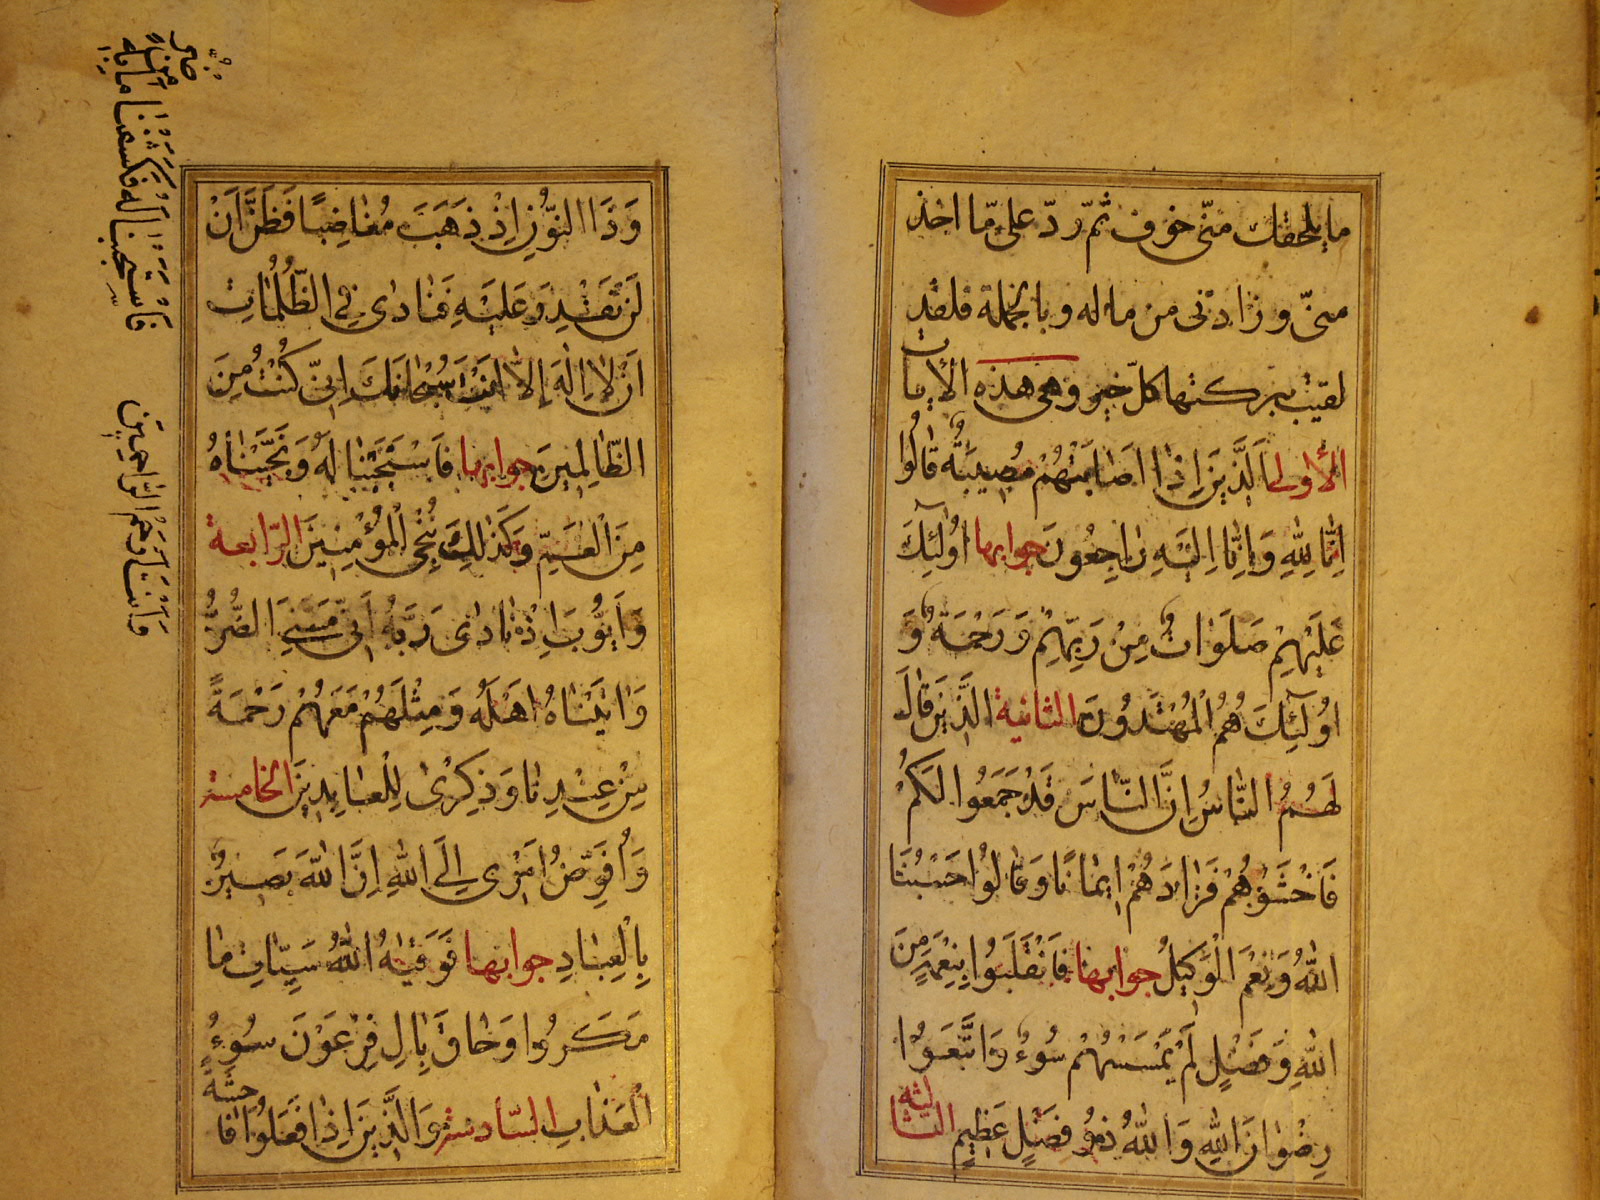 ما يلحقك منّي خوف ثمّ ردّ علي مّا اخذ
منّي وزادني من ماله وبالجملة فلقد
لقيت ببركتها كلّ خير وهي هذه الأيات
الأولى اَلَّذِينَ اِذَا اَصَابَتْهُمْ مُصِيبَةٌ قَالُوا
اِنَّا لِلّٰهِ وَاِنَّا اِلَيْهِ رَاجِعُونَ جوابها اُولٰٓئِكَ
عَلَيْهِمْ صَلَوَاتٌ مِنْ رَبِّهِمْ وَرَحْمَةٌ وَ
اُولٰٓئِكَ هُمُ الْمُهْتَدُونَ الثانية الَّذِينَ قَالَ
لَهُمُ النَّاسُ اِنَّ النَّاسَ قَدْ جَمَعُوا لَكُمْ
فَاخْشَوْهُمْ فَزَادَهُمْ اِيمَانًا وَقَالُوا حَسْبُنَا
اللّٰهُ وَنِعْمَ الْوَكِيلُ جوابها فَانْقَلَبُوا بِنِعْمَةٍ مِنَ
اللّٰهِ وَفَضْلٍ لَمْ يَمْسَسْهُمْ سُوءٌ وَاتَّبَعُوا
رِضْوَانَ اللّٰهِ وَاللّٰهُ ذُو فَضْلٍ عَظِيمٍ الثالثة
وَذَا النُّونِ اِذْ ذَهَبَ مُغَاضِبًا فَظَنَّ اَنْ
لَنْ نَقْدِرَ عَلَيْهِ فَنَادٰى فِي الظُّلُمَاتِ
اَنْ لَا اِلٰهَ اِلَّا اَنْتَ سُبْحَانَكَ اِنِّي كُنْتُ مِنَ
الظَّالِمِينَ جوابها فَاسْتَجَبْنَا لَهُ وَنَجَّيْنَاهُ
مِنَ الْغَمِّ وَكَذٰلِكَ نُنْجِي الْمُؤْمِنِينَ الرّابعة
وَاَيُّوبَ اِذْ نَادٰى رَبَّهُ اَنِّي مَسَّنِيَ الضُّرُّ
وَاٰتَيْنَاهُ اَهْلَهُ وَمِثْلَهُمْ مَعَهُمْ رَحْمَةً
مِنْ عِنْدِنَا وَذِكْرٰى لِلْعَابِدِينَ الخامسة
وَاُفَوِّضُ اَمْرِي اِلَى اللّٰهِ اِنَّ اللّٰهَ بَصِيرٌ
بِالْعِبَادِ جوابها فَوَقٰيهُ اللّٰهُ سَيِّاٰتِ مَا
مَكَرُوا وَحَاقَ بِاٰلِ فِرْعَوْنَ سُوءُ
الْعَذَابِ السّادسة وَالَّذِينَ اِذَا فَعَلُوا فَاحِشَةً
وَاَنْتَ اَرْحَمُ الرَّاحِمِينَ
فَاسْتَجَبْنَا لَهُ فَكَشَفْنَا مَا بِهِ